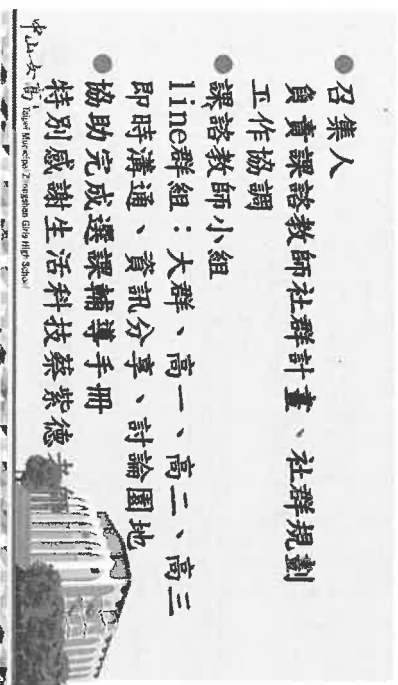 召集人
負責課諮教師社群計畫、社群規劃
工作協調
課諮教師小組
line群組：大群、高一、高二、高三
即時溝通、資訊分享、討論園地
協助完成選課輔導手冊
特別感謝生活科技蔡紫德
中山女高 Taipei Municipal Zhongshan Girls High School